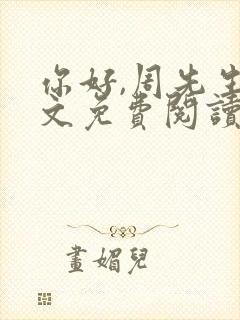 你好,周先生
文免費閱讀
畫媚兒